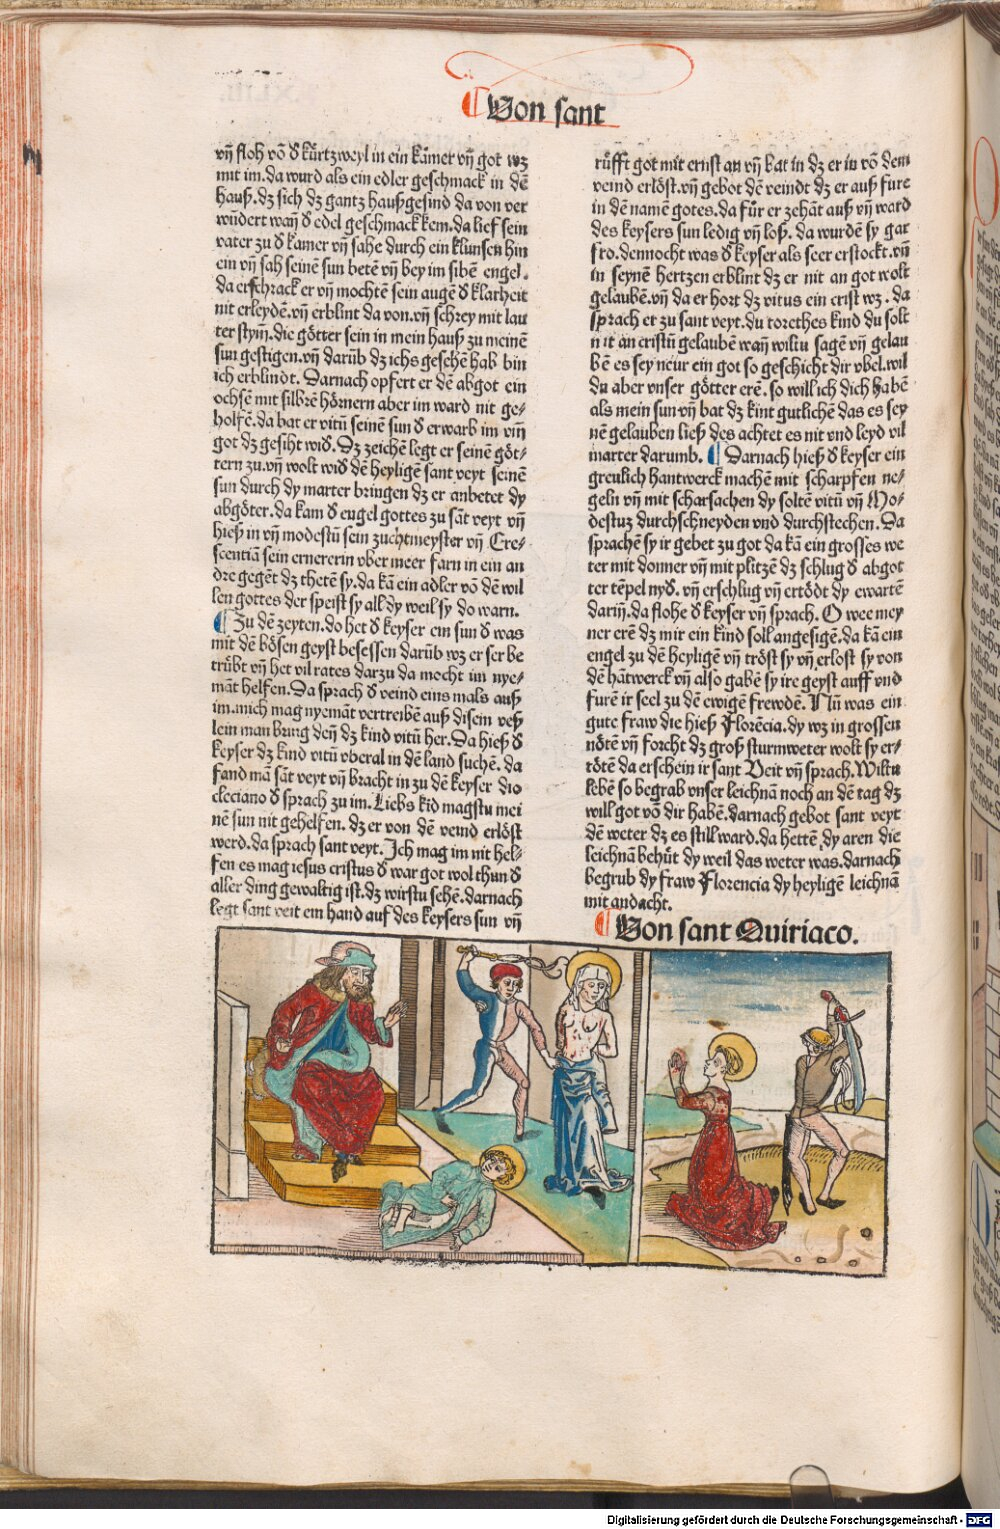 Von sant
vñ floh võ ď kůrtzweyl in ein kamer vñ got wz
mit im. da wurd als ein edler geschmack in dē
hauß. dz sich dz gantz haußgesind da von ver
wūdert wañ ď edel geschmack kem. da lief sein
vater zu ď kamer vñ sahe durch ein klunsen hin
ein vñ sah seinē sun betē vñ bey im sibē engel.
da erschrack er vñ mochtē sein augē ď klarheit
nit erleydē. vñ erblint da von. vñ schrey mit lau
ter stym̄. die götter sein in mein hauß zu meinē
sun gestigen. vñ darūb dz ichs gesehē hab bin
ich erblindt. Darnach opfert er dē abgot ein
ochsē mit silbrē hörnern aber im ward nit ge-
holfē. da bat er vitū seinē sun ď erwarb im vm̄
got dz gesiht wid. Dz zeichē legt er seinē göt-
tern zu. vñ wolt wid dē heyligē sant veyt seinē
sun durch dy marter bringen dz er anbetet dy
abgöter. da kam ď engel gottes zu sāt veyt vñ
hieß in vñ modestū sein zuchtmeyster vñ Cre-
scentiā sein ernererin vber meer farn in ein an
dre gegēt dz thetē sy. da kā ein adler võ dē wil
len gottes der speist sy all dy weil sy do warn.
Zu dē zeyten. do het ď keyser ein sun ď was
mit dē bösen geyst besessen darūb wz er ser be
trübt vñ het vil rates darzu da mocht im nye-
māt helfen. Da sprach ď veind eins mals auß
im. mich mag nyemāt vertreibē auß disem veß
lein man bring deñ dz kind vitū her. Da hieß ď
keyser dz kind vitū vberal in dē land suchē. da
fand mā sāt veyt vñ bracht in zu dē keyser dio
cleciano ď sprach zu im. Liebs kid magstu mei
nē sun nit gehelfen. dz er von dē veind erlöst
werd. da sprach sant veyt. Ich mag im nit hel-
fen es mag iesus cristus ď war got wol thun ď
aller ding gewaltig ist. dz wirstu sehē. darnach
legt sant veit ein hand auf des keysers sun vñ
růfft got mit ernst an vñ bat in dz er in võ dem
veind erlöst. vñ gebot dē veindt dz er auß fure
in dē namē gotes. da für er zehāt auß vñ ward
des keysers sun ledig vñ loß. da wurdē sy gar
fro. dennocht was ď keyser als seer erstockt. vñ
in seynē hertzen erblint dz er nit an got wolt
gelaubē. vñ da er hort dz vitus ein crist wz. da
sprach er zu sant veyt. du torethes kind du solt
nit an cristū gelaubē wañ wiltu sagē vñ gelau
bē es sey neur ein got so geschicht dir vbel. wil
du aber vnser götter erē. so will ich dich habē
als mein sun vñ bat dz kint gutlichē das es sey
nē gelauben ließ des achtet es nit vnd leyd vil
marter darumb. Darnach hieß ď keyser ein
greulich hantwerck machē mit scharpfen ne-
geln vñ mit scharsachen dy soltē vitū vñ Mo-
destuz durchschneyden vnd durchstechen. Da
sprachē sy ir gebet zu got da kā ein grosses we
ter mit donner vñ mit plitzē dz schlug ď abgot
ter tēpel nyd. vñ erschlug vñ ertödt dy ewartē
dariñ. da flohe ď keyser vñ sprach. O wee mey
ner erē dz mir ein kind soll angesigē. da kā ein
engel zu dē heyligē vñ tröst sy vñ erlost sy von
dē hātwerck vñ also gabē sy ire geyst auff vnd
furē ir seel zu dē ewigē frewdē. Nū was ein
gute fraw die hieß Florēcia. dy wz in grossen
nötē vñ forcht dz groß sturmweter wolt sy er-
tötē da erschein ir sant Veit vñ sprach. Wiltu
lebē so begrab vnser leichnā noch an dē tag dz
will got võ dir habē. darnach gebot sant veyt
dē weter dz es still ward. da hettē dy aren die
leichnā behüt dy weil das weter was. darnach
begrub dy fraw Florencia dy heyligē leichnā
mit andacht.
Von sant Quiriaco.
Digitalisierung gefördert durch die Deutsche Forschungsgemeinschaft - DFG